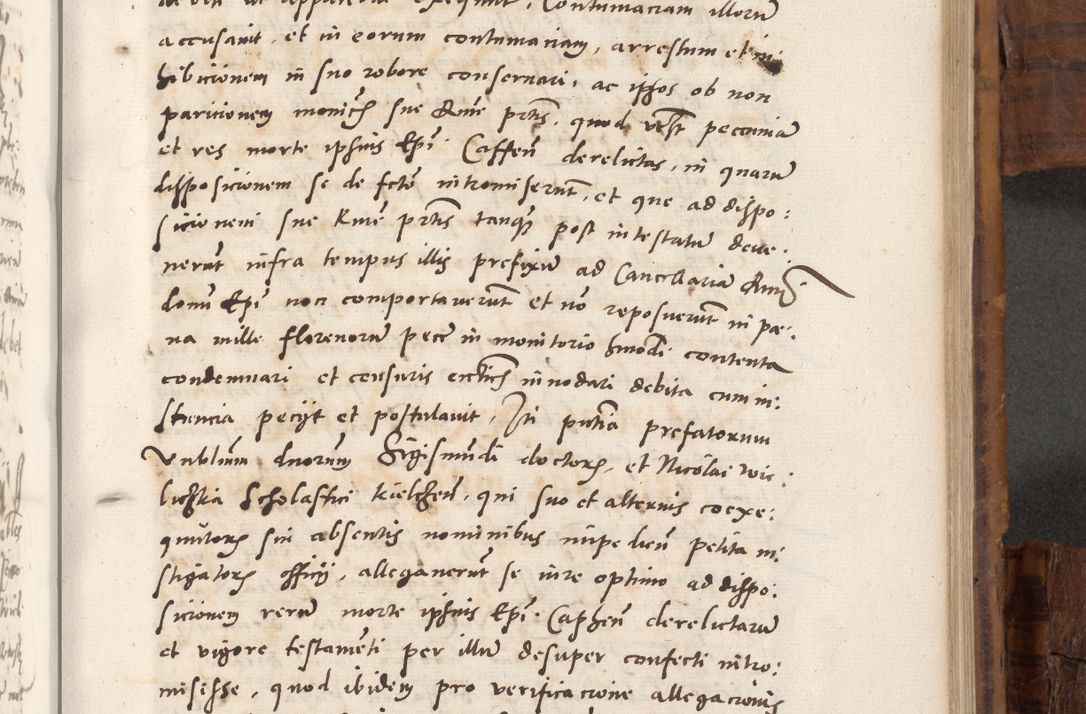 accusavit, et in eorum contumaciam, arrestum et in:
hibicionem in suo robore conservari, ac ipsos ob non
paricionem monicõs sue Rme prtis, quod pecunias
et res morte ipsius Epi Caffeñ derelictas, in quarũ
disposicionem se de fcto intromiserũt, et que ad dispo:
sicionem sue Rme prtis tanq̃ post intestatũ deve:
nerũt infra tempus illis prefixũ ad Cancellariã
domi Epi non comportaverũt et nõ reposuerũt in pæ:
na mille florenorũ pecẽ in monitorio hmodi contenta
condemnari et censuris innodari debita cum in:
stancia peciit et postulavit, In pntia prefatorum
dnorum Sigismũdi doctoris, et Nicolae wie:
Scholastici kielceñ, qui suo et alternis coexe:
qutoris sui absentis nominibus impedieñ petita in:
stigatoris officij, allegaverũt se iure optimo ad dispo:
sicionem rerũ morte ipsius Epi Capheñ derelictarũ
et vigore testamẽti per illũ desuper confecti intro:
misisse, quod ibidem pro verificacione allegacionis